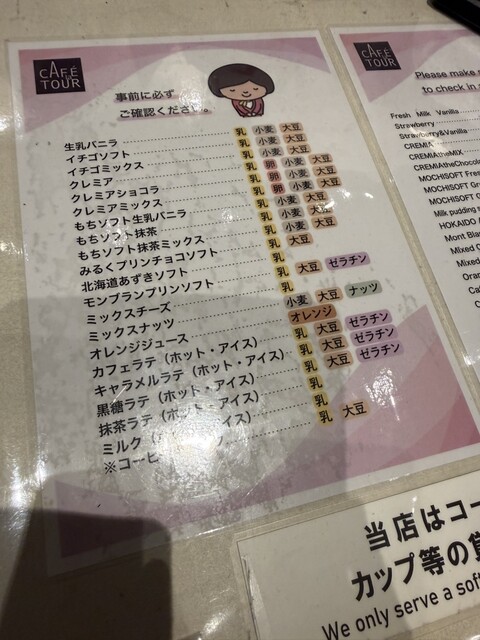 CAFÉ TOUR
事前に必ず
ご確認ください。
生乳バニラ 乳 小麦 大豆
イチゴソフト 乳 小麦 大豆
イチゴミックス 乳 小麦 大豆
クレミア 乳 卵 小麦 大豆
クレミアショコラ 乳 卵 小麦 大豆
クレミアミックス 乳 卵 小麦 大豆
もちソフト生乳バニラ 乳 小麦 大豆
もちソフト抹茶 乳 小麦 大豆
もちソフト抹茶ミックス 乳 小麦 大豆
みるくプリンチョコソフト 乳 大豆
北海道あずきソフト 乳
モンブランプリンソフト 乳 大豆 ゼラチン
ミックスチーズ 乳
ミックスナッツ 小麦 大豆 ナッツ
オレンジジュース オレンジ
カフェラテ（ホット・アイス） 乳 大豆 ゼラチン
キャラメルラテ（ホット・アイス） 乳 大豆 ゼラチン
黒糖ラテ（ホット・アイス） 乳 大豆 ゼラチン
抹茶ラテ（ホット・アイス） 乳
ミルク（ アイス） 乳
※コーヒ 乳 大豆
CAFÉ TOUR
Please make
to check in
Fresh Milk Vanilla
Strawberry
Strawberry&Vanilla
CREMIA
CREMIAtheMIX
CREMIAtheChocola
MOCHISOFT Fres
MOCHISOFT Gr
MOCHISOFT
Milk pudding
HOKKAIDO A
Mont Blan
Mixed
Mixed
Oran
当店はコー
カップ等の
We only serve a sof